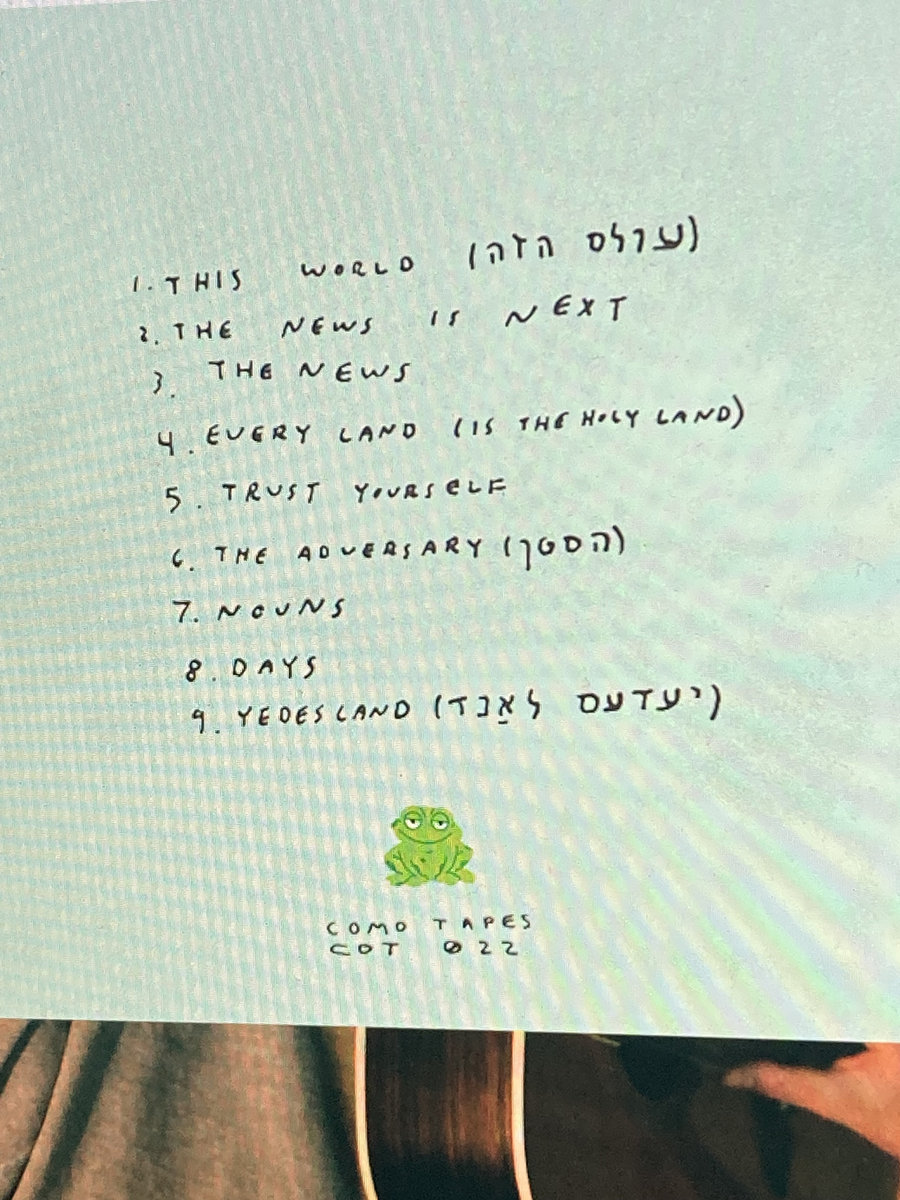 1. THIS WORLD (עולם הזה)
2. THE NEWS IS NEXT
3. THE NEWS
4. EVERY LAND (IS THE HOLY LAND)
5. TRUST YOURSELF
6. THE ADVERSARY (הסטן)
7. NOUNS
8. DAYS
9. YEDES LAND (יעדעס לאַנד)
COMO TAPES
COT 022